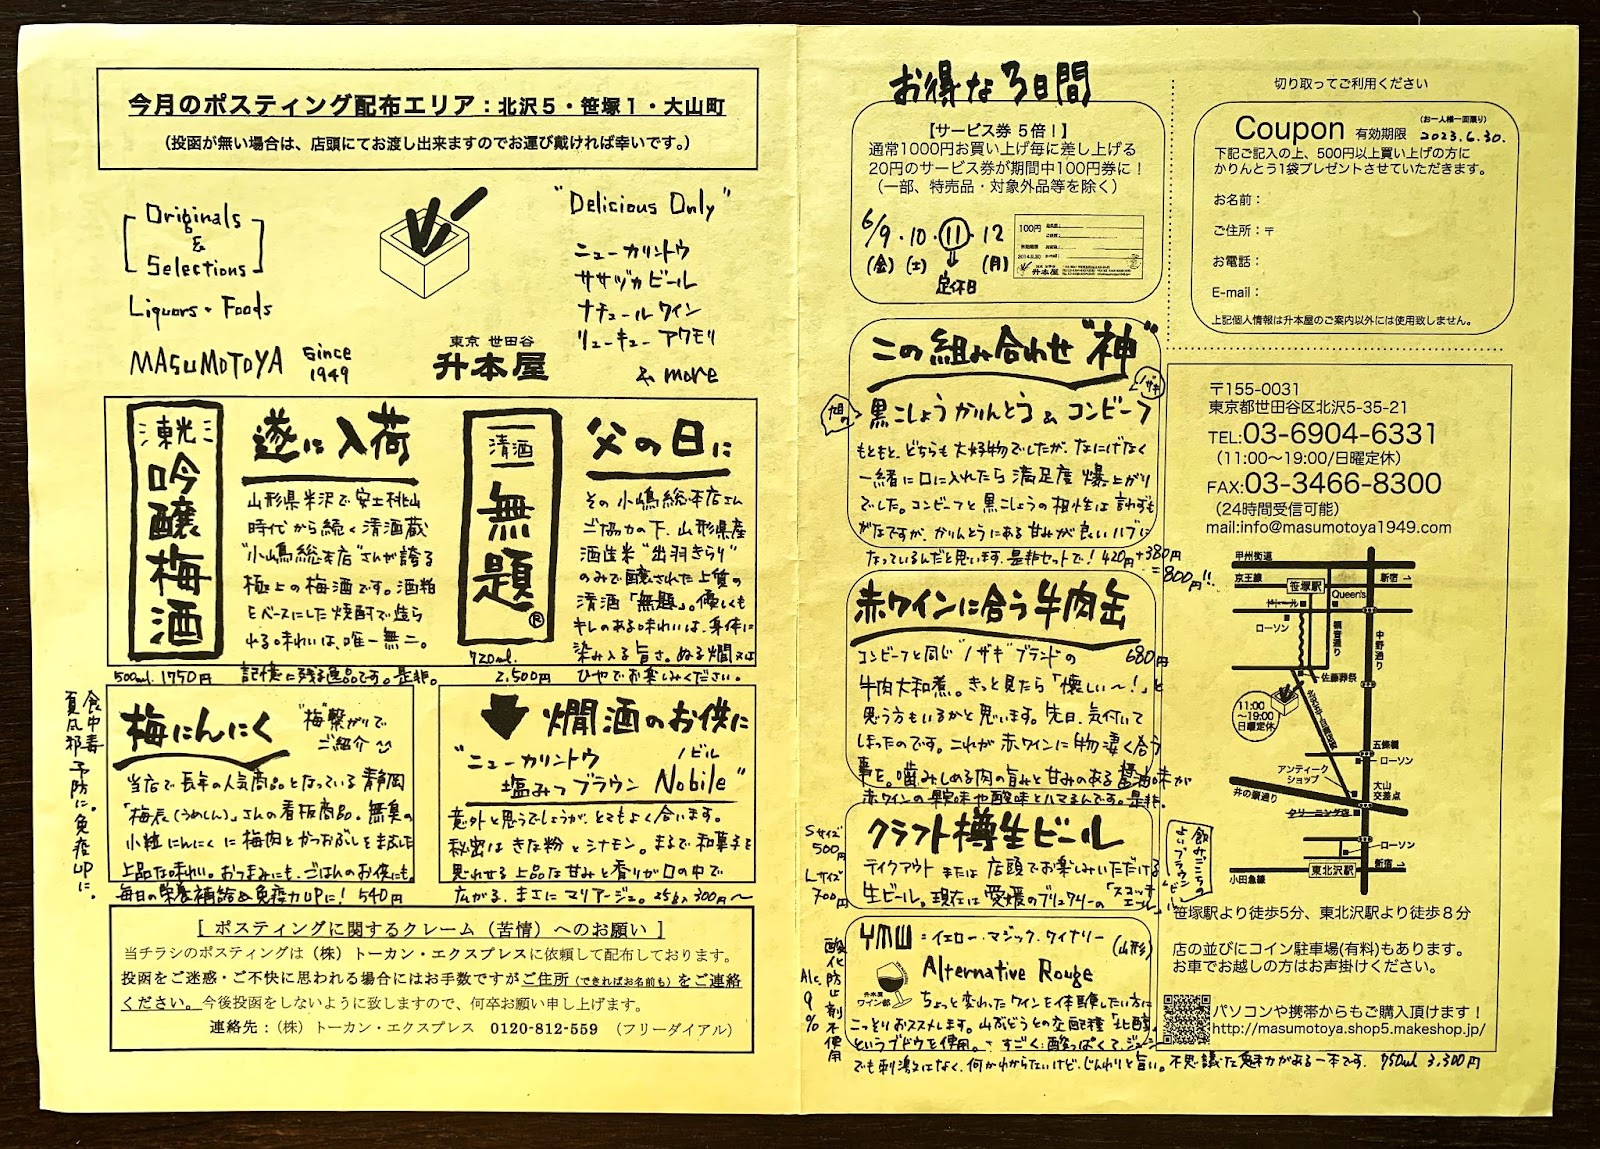 今月のポスティング配布エリア：北沢５・笹塚１・大山町
（投函が無い場合は、店頭にてお渡し出来ますのでお運び戴ければ幸いです。）
Originals
&
Selections
Liquors・Foods
MASUMOTOYA since 1949
東京 世田谷
升本屋
"Delicious Only"
ニューカリントウ
ササヅカビール
ナチュールワイン
リューキューアワモリ
& more
東光
吟醸梅酒
500ml. 1750円
遂に入荷
山形県米沢で安土桃山
時代から続く清酒蔵
"小嶋総本店"さんが誇る
極上の梅酒です。酒粕
をベースにした焼酎で造ら
れる味わいは、唯一無二。
記憶に残る逸品です。是非。
清酒
無題®
720ml.
2,500円
父の日に
その小嶋総本店さん
ご協力の下、山形県産
酒造米"出羽きらり"
のみで醸された上質の
清酒「無題」。優しくも
キレのある味わいは、身体に
染み入る旨さ。ぬる燗又は
ひやでお楽しみください。
食中毒予防に。免疫UPに。
夏風邪
梅にんにく
"梅"繋がりで
ご紹介
当店で長年の人気商品となっている静岡
「梅辰（うめしん）」さんの看板商品。無臭の
小粒にんにくに梅肉とかつおぶしをまぶした
上品な味わい。おつまみにも、ごはんのお供にも。
毎日の栄養補給&免疫力UPに！ 540円
燗酒のお供に
"ニューカリントウ
塩みつブラウン Nobile"
ノビル
意外と思うでしょうが、とてもよく合います。
秘密はきな粉とシナモン。まるで和菓子を
思わせる上品な甘みと香りが口の中で
広がる、まさにマリアージュ。25g入300円〜
［ ポスティングに関するクレーム（苦情）へのお願い ］
当チラシのポスティングは（株）トーカン・エクスプレスに依頼して配布しております。
投函をご迷惑・ご不快に思われる場合にはお手数ですがご住所（できればお名前も）をご連絡
ください。今後投函をしないように致しますので、何卒お願い申し上げます。
連絡先：（株）トーカン・エクスプレス 0120-812-559 （フリーダイアル）
お得な3日間
【サービス券 5倍！】
通常1000円お買い上げ毎に差し上げる
20円のサービス券が期間中100円券に！
（一部、特売品・対象外品等を除く）
6/9・10・11・12
(金) (土) (月)
定休日
100円
升本屋
この組み合わせ"神"
旭の
ノザキ
黒こしょうかりんとう & コンビーフ
もともと、どちらも大好物でしたが、なにげなく
一緒に口に入れたら満足度爆上がり
でした。コンビーフと黒こしょうの相性は言わずも
がなですが、かりんとうにある甘みが良いハブに
なっているんだと思います。是非セットで！420円+380円
=800円!!
赤ワインに合う牛肉缶
680円
コンビーフと同じ"ノザキ"ブランドの
牛肉大和煮。きっと見たら「懐しい〜！」と
思う方もいるかと思います。先日、気付いて
しまったのです。これが赤ワインに物凄く合う
事を。噛みしめる肉の旨みと甘みのある醤油味が
赤ワインの果実味や酸味とハマるんです。是非。
クラフト樽生ビール
Sサイズ
500円
Lサイズ
700円
テイクアウトまたは店頭でお楽しみいただける
生ビール。現在は愛媛のブリュワリーの「スコッチエール」
飲みごこちの
よいブラウンビール
YMW：イエロー・マジック・ワイナリー（山形）
Alternative Rouge
升本屋
ワイン部
酸化防止剤不使用
Alc.9%
ちょっと変わったワインを体験したい方に
こっそりおススメします。山ぶどうとの交配種「北醇」
というブドウを使用。すごく酸っぱくて、ジューシー
でも刺激はなく、何かわからないけど、じんわりと旨い。不思議な魅力がある一本です。 750ml 3,300円
切り取ってご利用ください
Coupon 有効期限 2023.6.30.
（お一人様一回限り）
下記ご記入の上、500円以上買い上げの方に
かりんとう1袋プレゼントさせていただきます。
お名前：
ご住所：〒
お電話：
E-mail：
上記個人情報は升本屋のご案内以外には使用致しません。
〒155-0031
東京都世田谷区北沢5-35-21
TEL:03-6904-6331
（11:00〜19:00/日曜定休）
FAX:03-3466-8300
（24時間受信可能）
mail:info@masumotoya1949.com
甲州街道
京王線
笹塚駅
新宿→
Queen's
ドトール
ローソン
観音通り
中野通り
佐藤葬祭
11:00
〜19:00
日曜定休
五條橋
ローソン
アンティーク
ショップ
大山
交差点
井の頭通り
クリーニング店
ローソン
新宿→
小田急線
東北沢駅
笹塚駅より徒歩5分、東北沢駅より徒歩８分
店の並びにコイン駐車場(有料)もあります。
お車でお越しの方はお声掛けください。
パソコンや携帯からもご購入頂けます！
http://masumotoya.shop5.makeshop.jp/